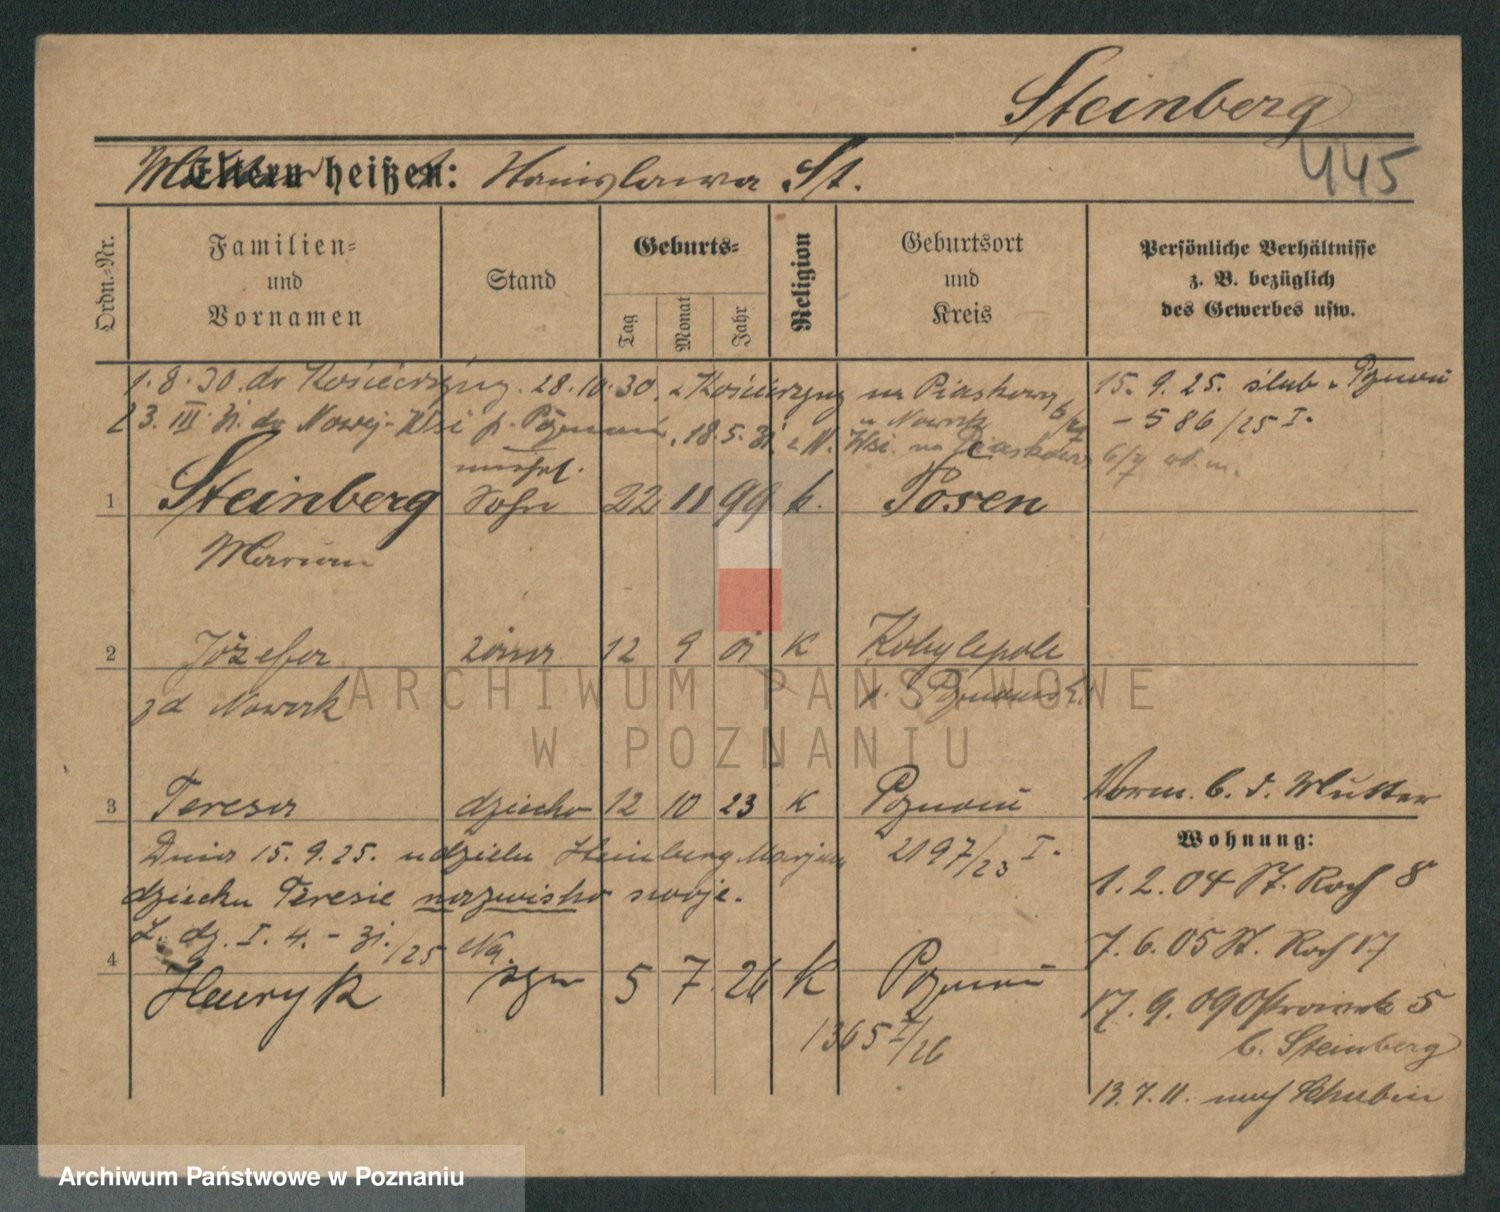 Steinberg
445
Mutter
Eltern heißen: Stanisława St.
Ordn.-Nr.
Familien-
und
Vornamen
Stand
Geburts-
Tag
Monat
Jahr
Religion
Geburtsort
und
Kreis
Persönliche Verhältnisse
z. B. bezüglich
des Gewerbes usw.
1.8.30. do Kościerzyny. 28.10.30. z Kościerzyny na Piaskowa 6/7
23.III.31. do Nowej-Wsi p. Poznań, 18.5.31. z N. Wsi. na Piaskowa 6/7
u Nowak
15.9.25. ślub w Poznaniu
-586/25 I.
1 Steinberg
Marian
unehel.
Sohn 22 11 99 k. Posen
2 Józefa żona 12 9 01 K Kobylepole
zd Nowak
p. Poznański
3 Teresa dziecko 12 10 23 K Poznań
2197/23 I.
Dnia 15.9.25. udzielił Steinberg Marjan
dziecku Teresie nazwisko swoje.
L. dz. I. 4. - 31./25 Na.
4 Henryk syn 5 7 26 K Poznań
1365 I/26
Vorm. b. d. Mutter
Wohnung:
1.2.04 St. Roch 8
7.6.05 St. Roch 17
17.9.09 Ostrowek 5
b. Steinberg
13.7.11. nach Schubin
ARCHIWUM PAŃSTWOWE
W POZNANIU
Archiwum Państwowe w Poznaniu